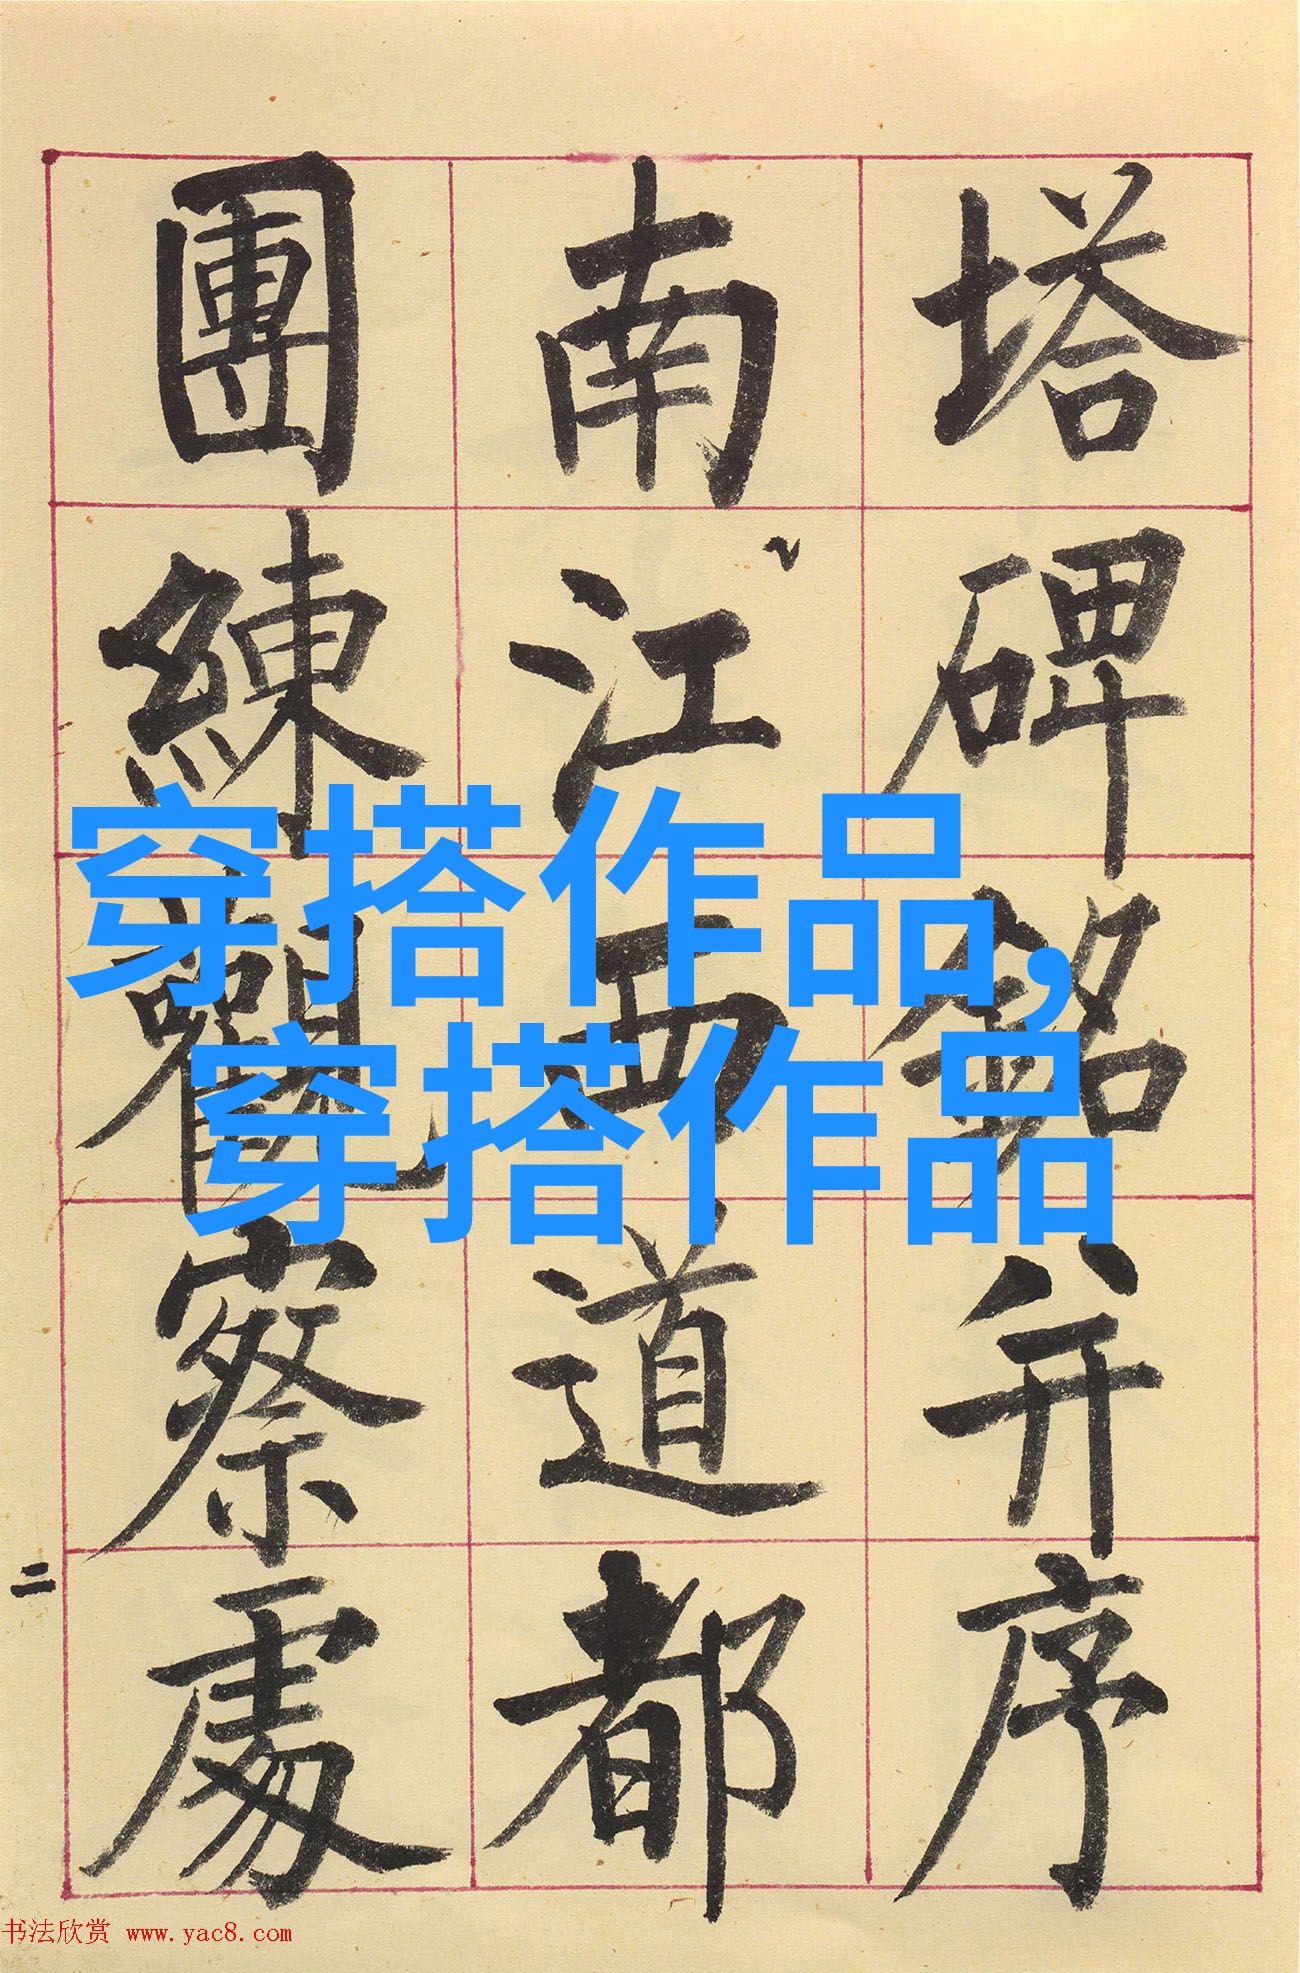 塔碑銘并序
南江西道都
團練觀察處
二
穿搭作品,
穿搭作品
书法欣赏 www.yac8.com